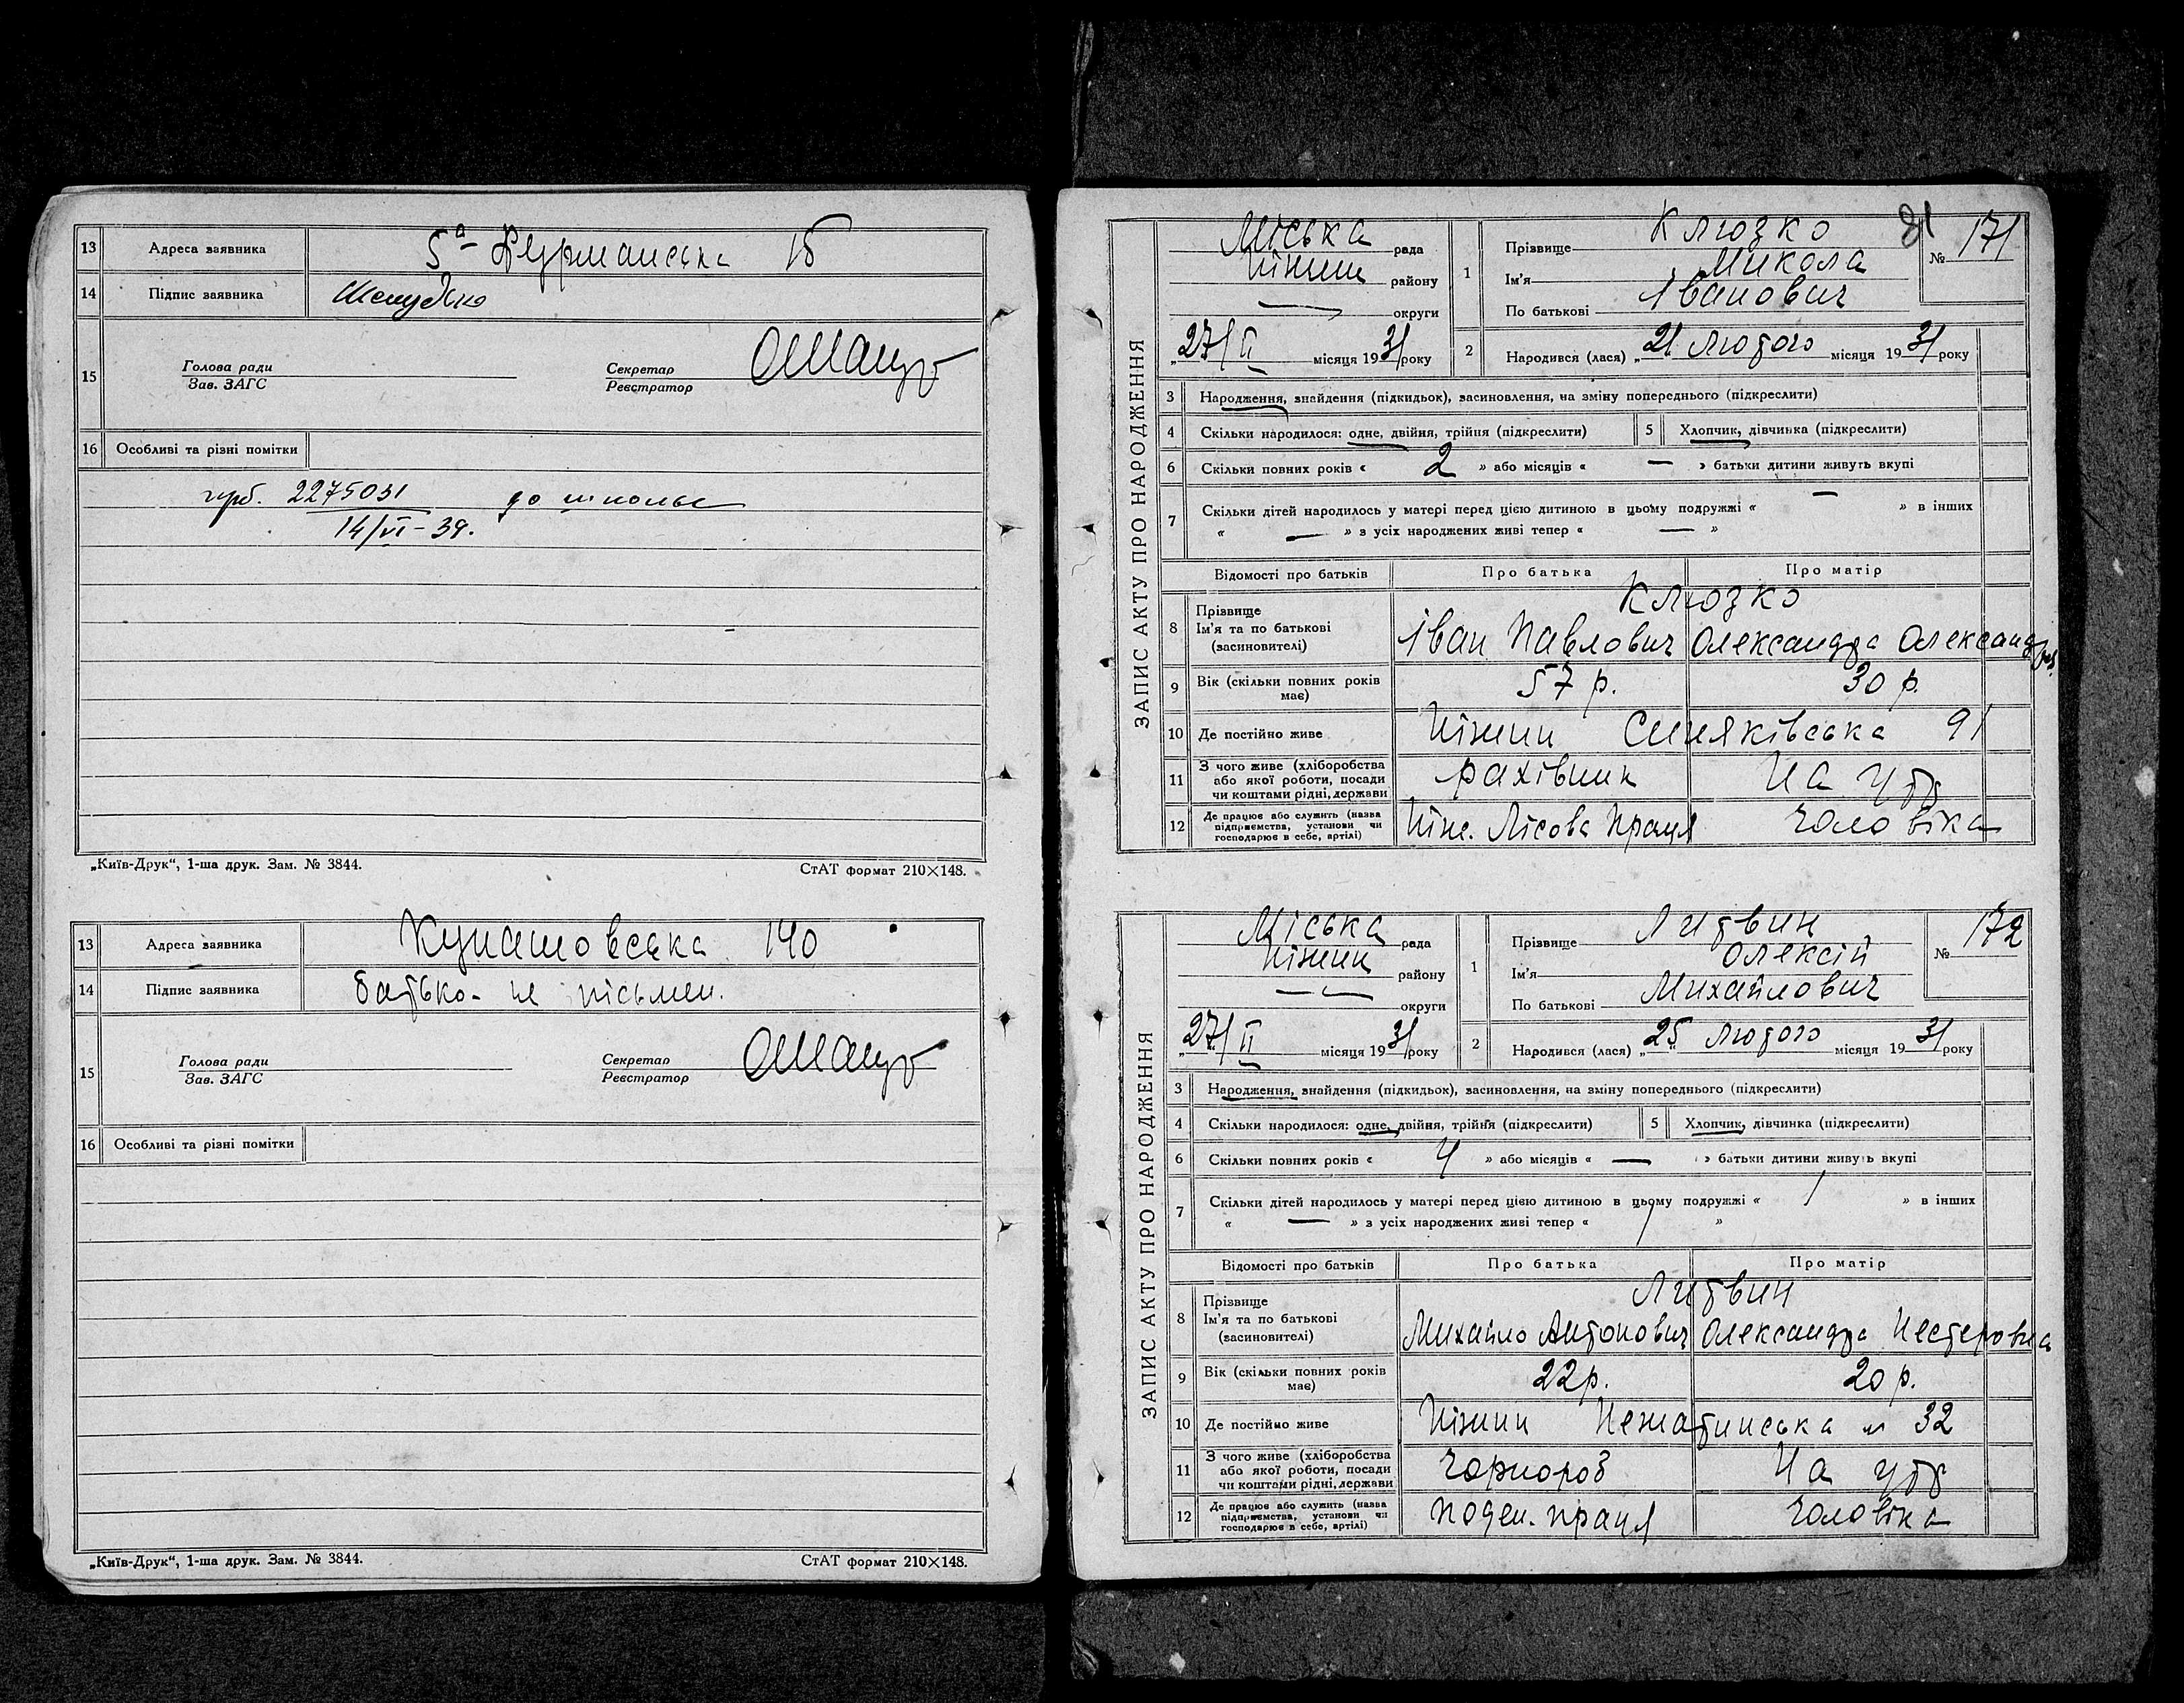 13 Адреса заявника 5а Фурманська 15
14 Підпис заявника
15 Голова ради
Зав. ЗАГС
Секретар
Реєстратор
16 Особливі та різні помітки
2275031 до школы
14/VI-39.
„Київ-Друк“, 1-ша друк. Зам. № 3844. СтАТ формат 210×148.
13 Адреса заявника Кунашовська 140
14 Підпис заявника батько - не письмен.
15 Голова ради
Зав. ЗАГС
Секретар
Реєстратор
16 Особливі та різні помітки
„Київ-Друк“, 1-ша друк. Зам. № 3844. СтАТ формат 210×148.
ЗАПИС АКТУ ПРО НАРОДЖЕННЯ
Міська рада
Ніжин району
— округи
„27/II місяця 1931 року
81
№ 171
1 Прізвище Клюзко
Ім'я Микола
По батькові Іванович
2 Народився (лася) „21 Лютого місяця 1931 року
3 Народження, знайдення (підкидьок), засиновлення, на зміну попереднього (підкреслити)
4 Скільки народилося: одне, двійня, трійня (підкреслити) 5 Хлопчик, дівчинка (підкреслити)
6 Скільки повних років « 2 » або місяців « — » батьки дитини живуть вкупі
7 Скільки дітей народилось у матері перед цією дитиною в цьому подружжі « — » в інших
« — » з усіх народжених живі тепер « — »
Відомості про батьків Про батька Про матір
8 Прізвище Клюзко
Ім'я та по батькові Іван Павлович Олександра Олександров.
(засиновителі)
9 Вік (скільки повних років має) 57 р. 30 р.
10 Де постійно живе Ніжин Синяківська 91
11 З чого живе (хліборобства рахівник На утр
або якої роботи, посади
чи коштами рідні, держави
12 Де працює або служить (назва Ніж. Лісова Праця чоловіка
підприємства, установи чи
господарює в себе, артілі)
ЗАПИС АКТУ ПРО НАРОДЖЕННЯ
Міська рада
Ніжин району
— округи
„27/II місяця 1931 року
№ 172
1 Прізвище Литвин
Ім'я Олексій
По батькові Михайлович
2 Народився (лася) „25 Лютого місяця 1931 року
3 Народження, знайдення (підкидьок), засиновлення, на зміну попереднього (підкреслити)
4 Скільки народилося: одне, двійня, трійня (підкреслити) 5 Хлопчик, дівчинка (підкреслити)
6 Скільки повних років « 4 » або місяців « — » батьки дитини живуть вкупі
7 Скільки дітей народилось у матері перед цією дитиною в цьому подружжі « 1 » в інших
« — » з усіх народжених живі тепер « 1 »
Відомості про батьків Про батька Про матір
8 Прізвище Литвин
Ім'я та по батькові Михайло Антонович Олександра Нестеровна
(засиновителі)
9 Вік (скільки повних років має) 22 р. 20 р.
10 Де постійно живе Ніжин Нежатинська 32
11 З чого живе (хліборобства Чорнороб На утр
або якої роботи, посади
чи коштами рідні, держави
12 Де працює або служить (назва Поден. праця чоловіка
підприємства, установи чи
господарює в себе, артілі)